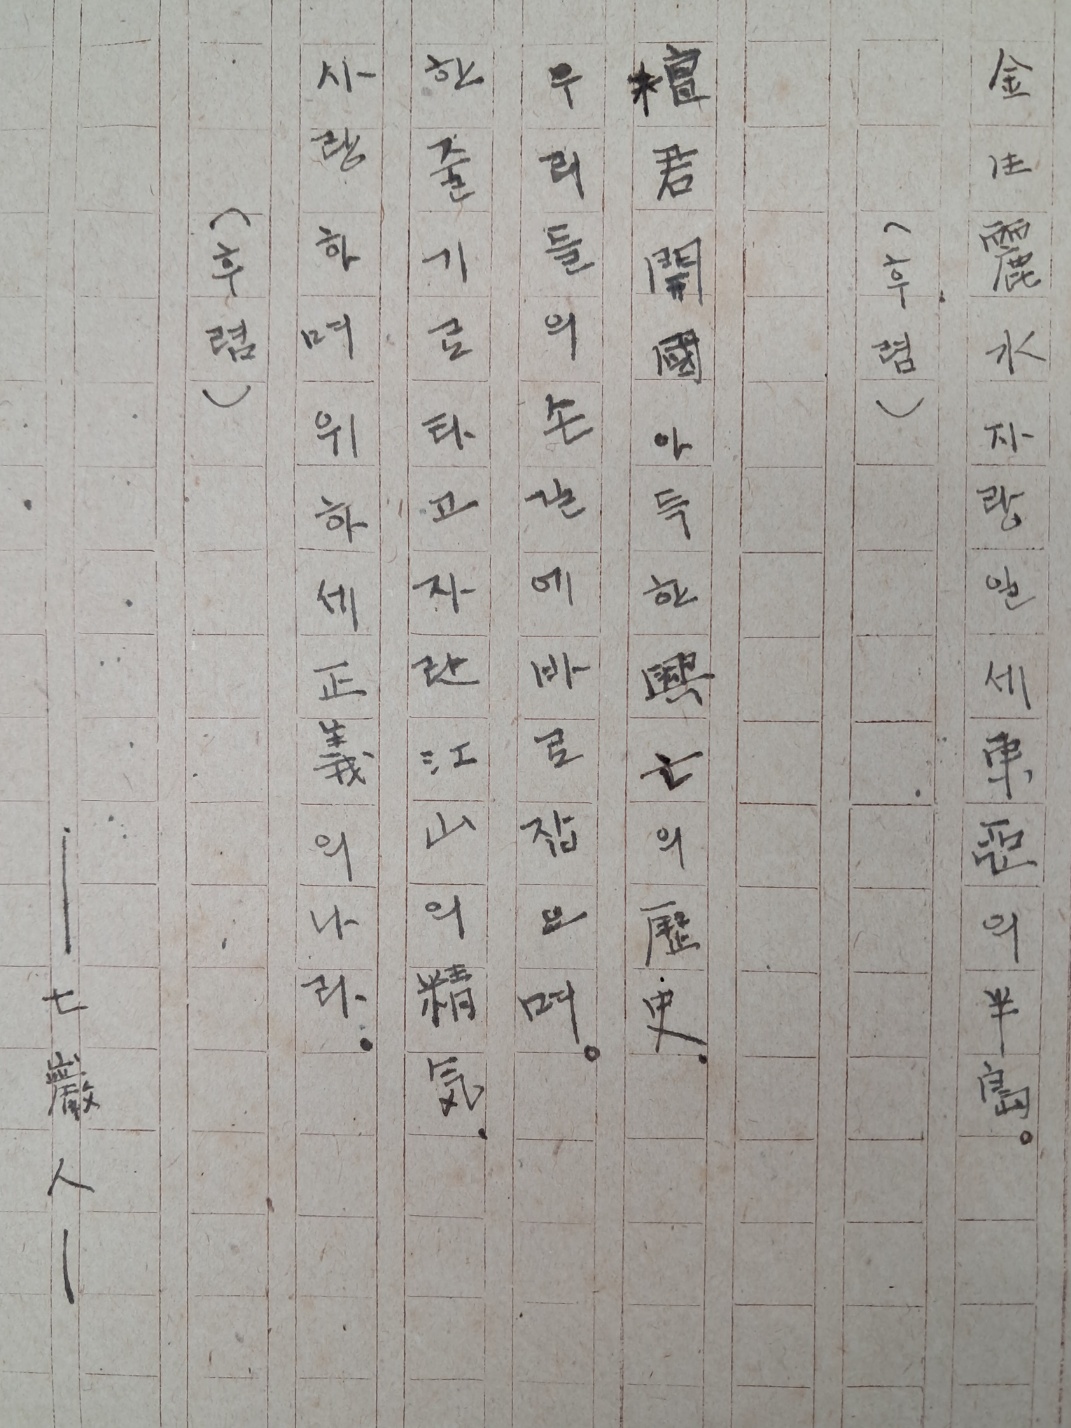 金生麗水자랑일세東亞의半島。
(후렴)
檀君開國아득한興亡의歷史.
우리들의손길에바로잡으며。
한줄기로타고자란江山의精気.
사랑하며위하세正義의나라.
(후렴)
—七巖人—